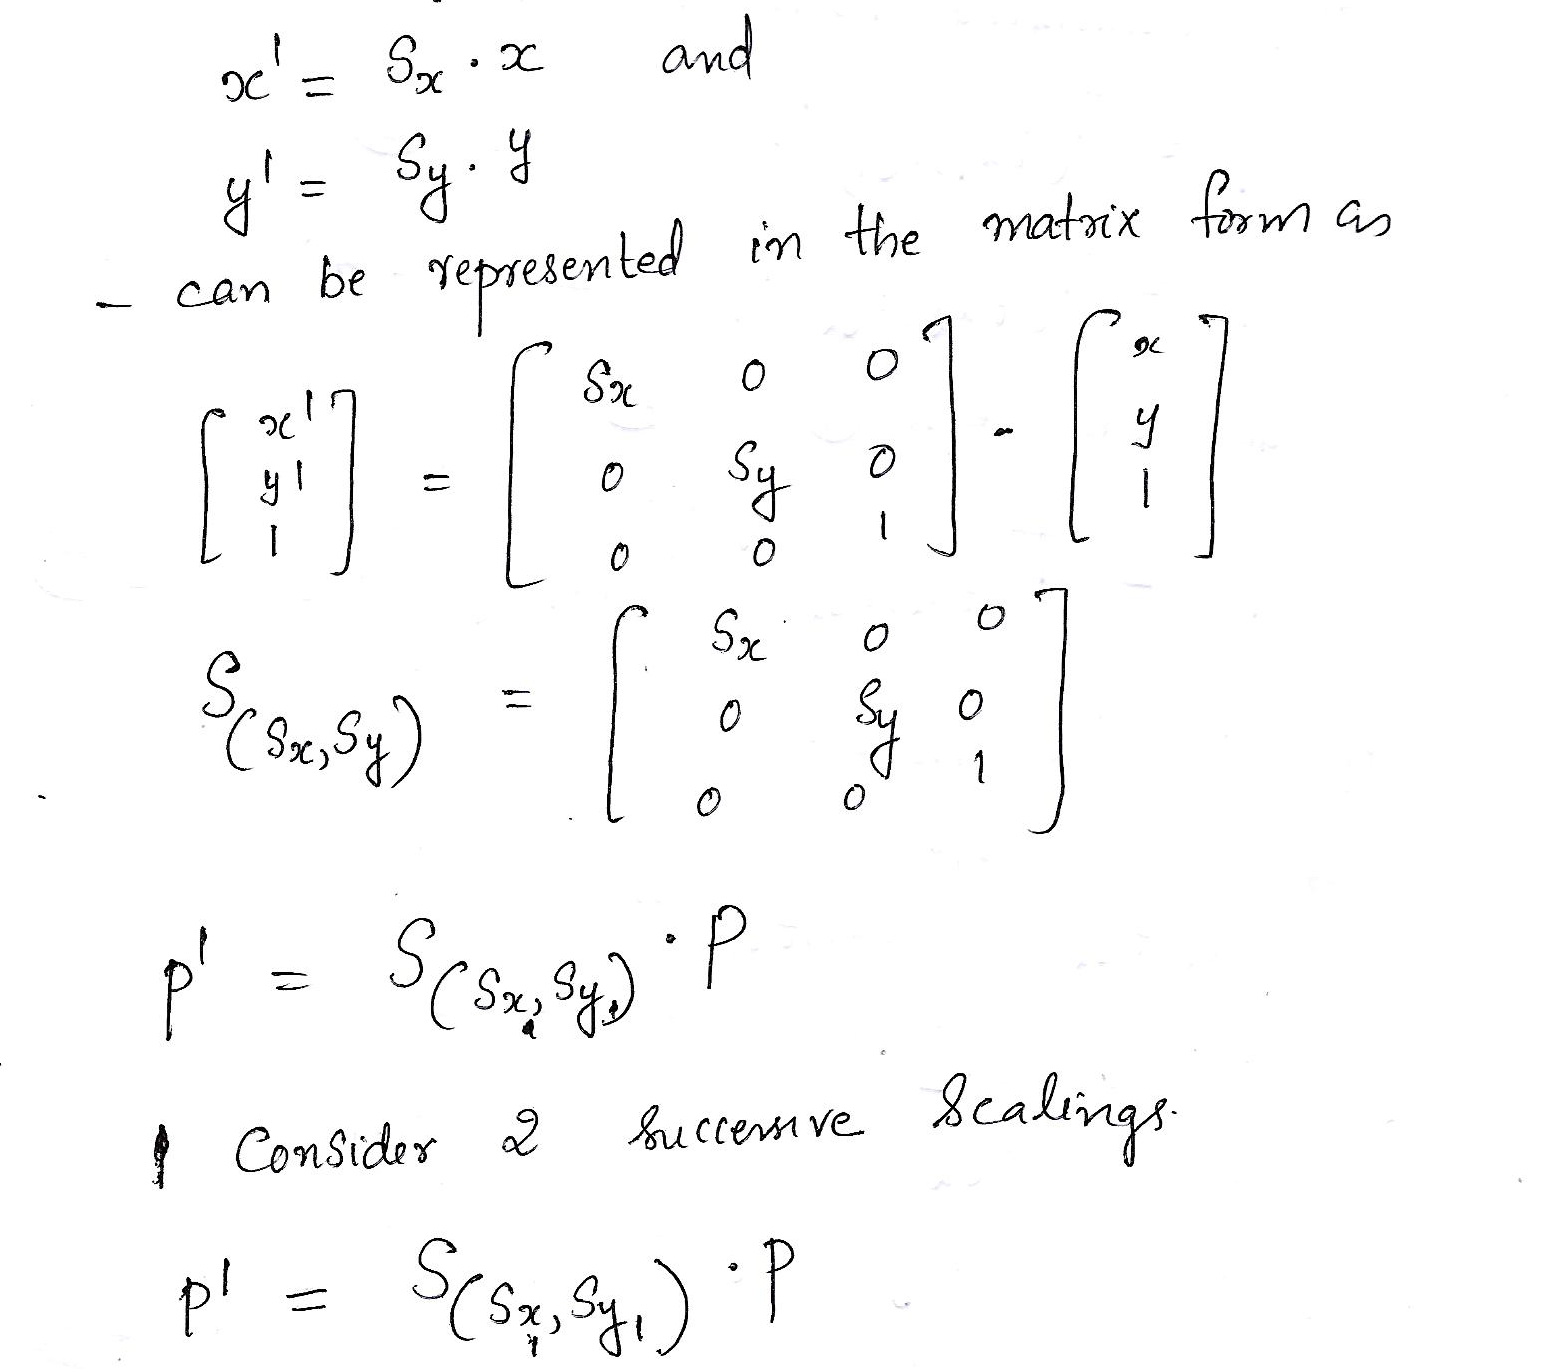 x' = Sx . x and
y' = Sy . y
- can be represented in the matrix form as
[ x' ] = [ Sx 0 0 ] . [ x ]
[ y' ] [ 0 Sy 0 ] [ y ]
[ 1 ] [ 0 0 1 ] [ 1 ]
S(Sx, Sy) = [ Sx 0 0 ]
[ 0 Sy 0 ]
[ 0 0 1 ]
P' = S(Sx, Sy) . P
Consider 2 successive Scalings.
P' = S(Sx1, Sy1) . P